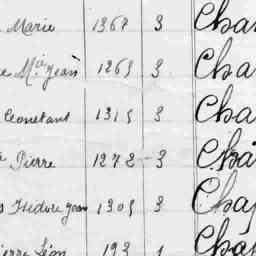 Marie 1367 3 Cha
Mie Jean 1269 3 Cha
Constant 1315 3 Cha
Pierre 1272 - 3 Cha
Isidore Jean 1305 3 Chap
Pierre Léon 193 1 Chap